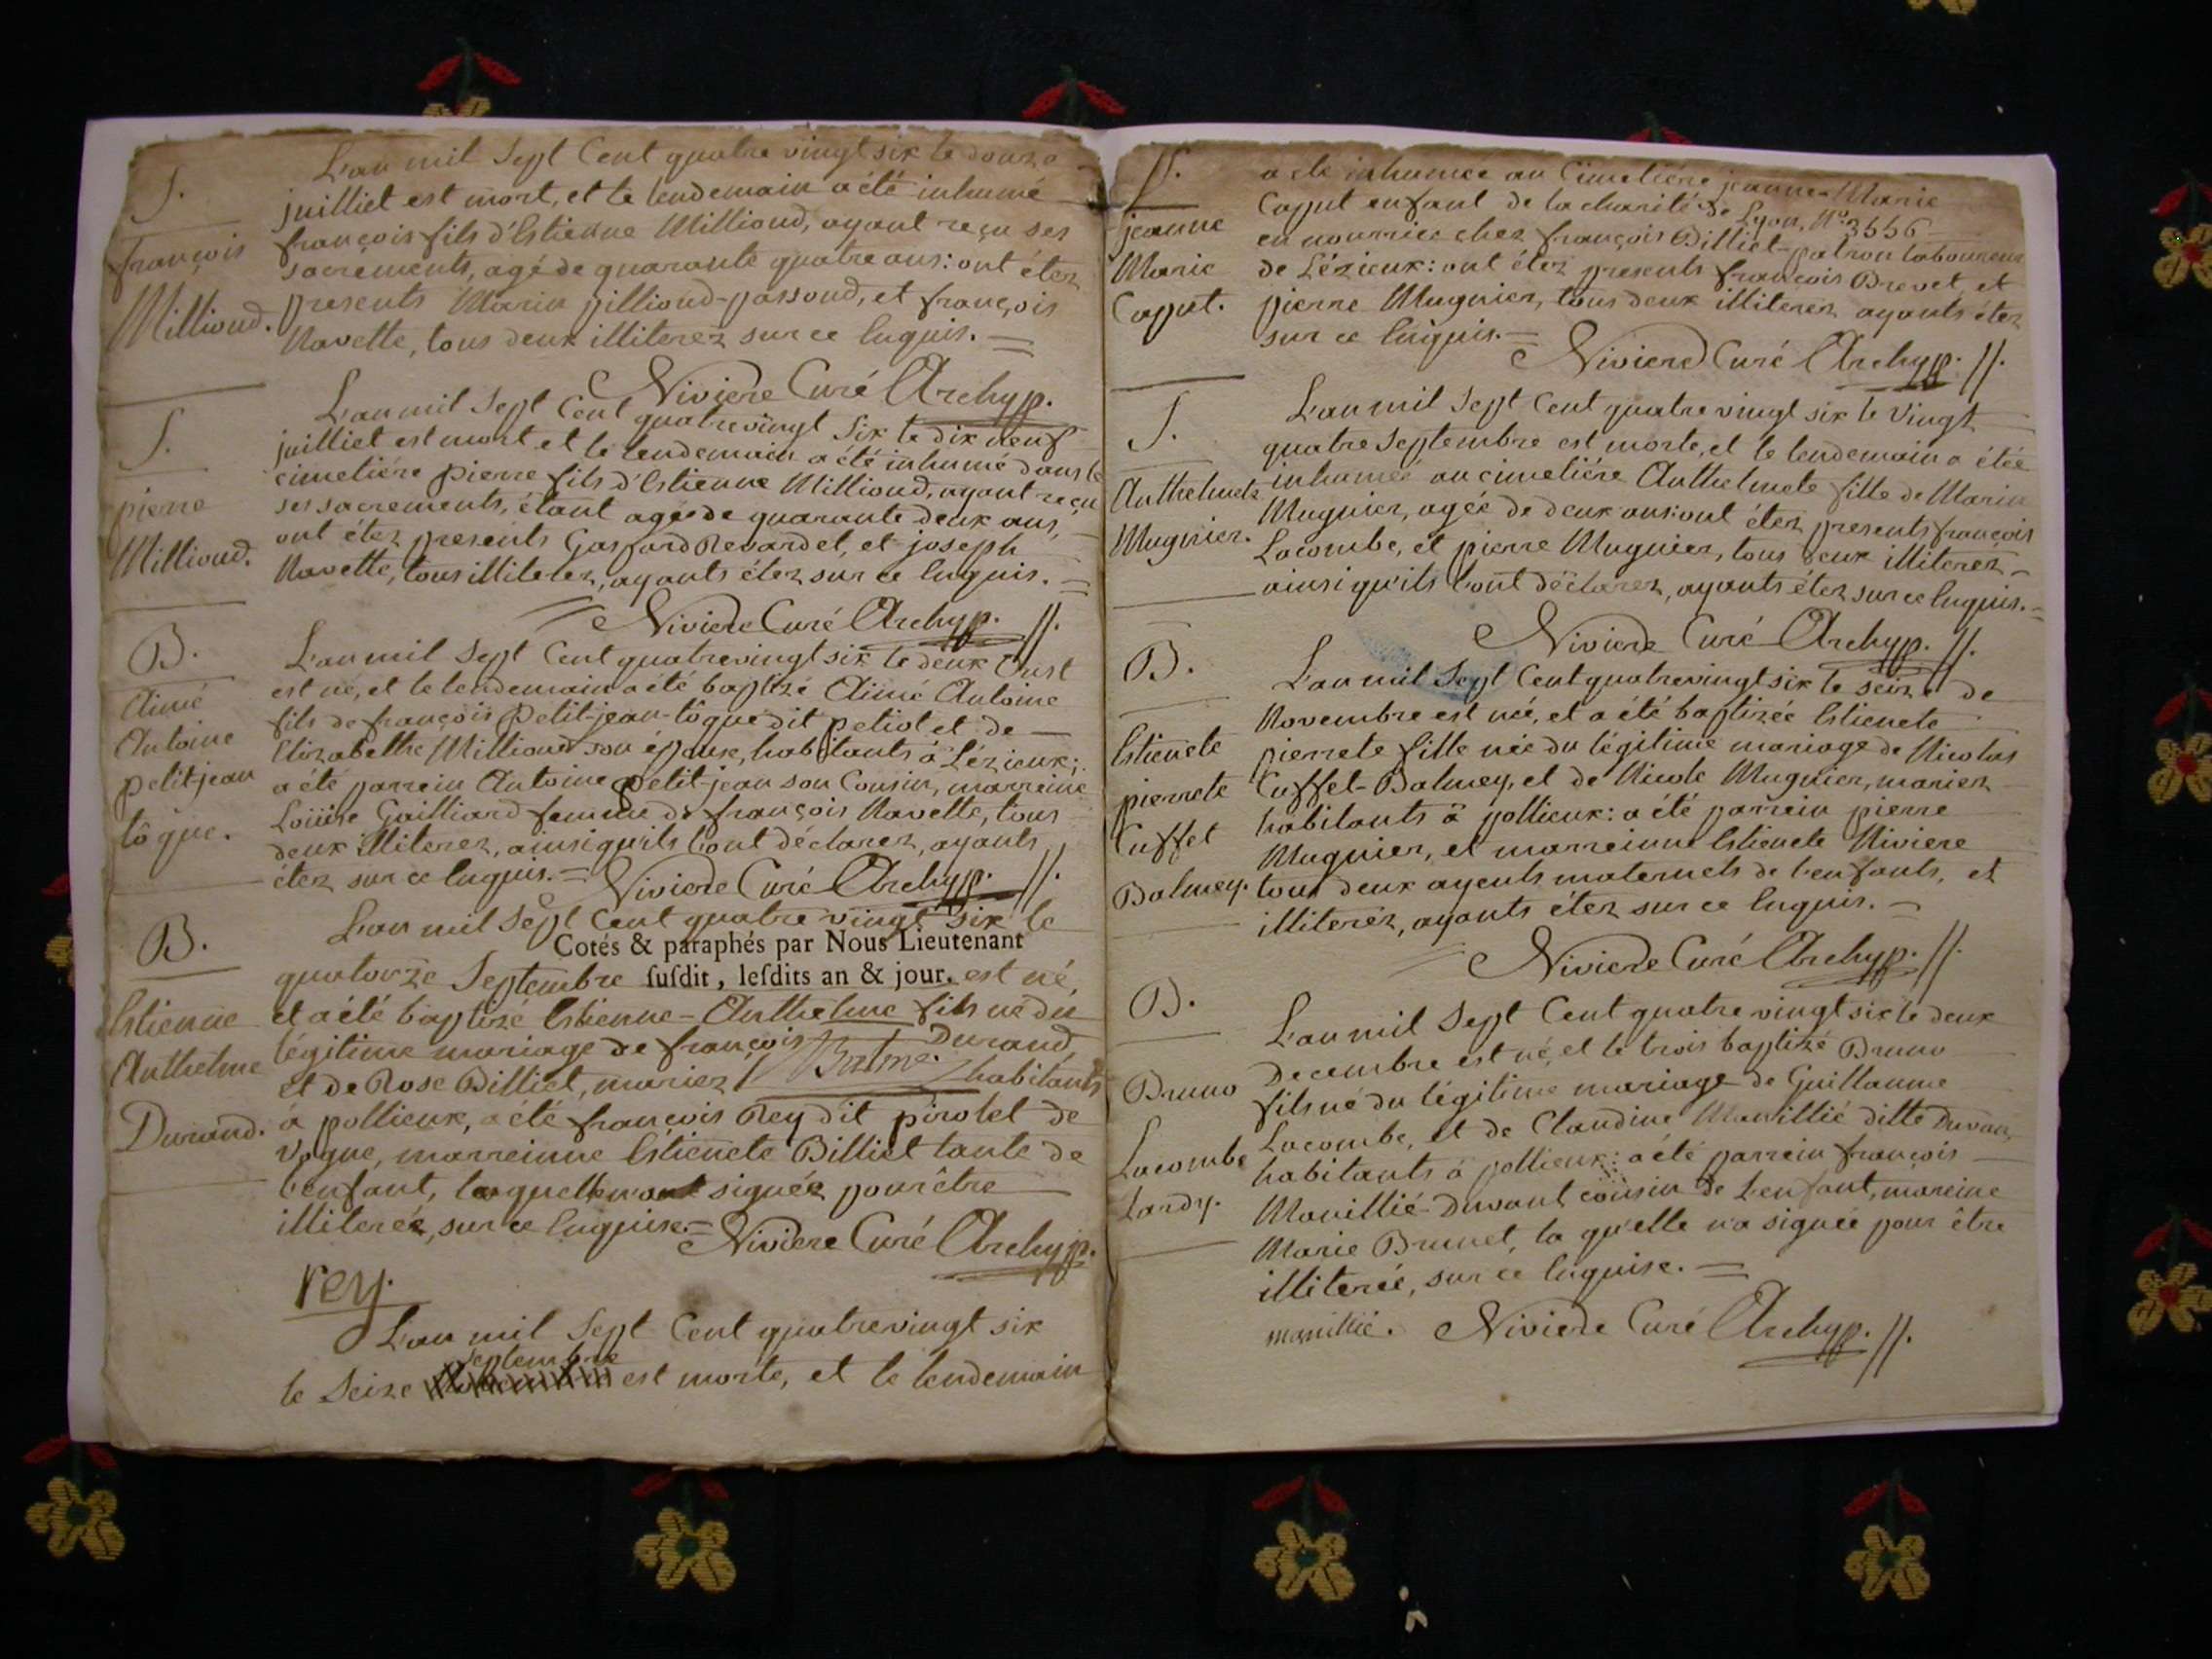 S.
François
Millioud.
L'an mil Sept Cent quatre vingt six le douze
juilliet est mort, et le lendemain a été inhumé
françois fils d'Estienne Millioud, ayant reçu ses
sacrements, agé de quarante quatre ans: ont étez
presents Marin pillioud-passoud, et françois
Navette, tous deux illiterez sur ce Enquis. =
Niviere Curé Archyp.
S.
pierre
Millioud.
L'an mil Sept Cent quatre vingt Six le dix neuf
juilliet est mort et le lendemain a été inhumé dans le
cimetiére pierre fils d'Estienne Millioud, ayant reçu
ses sacrements, étant agé de quarante deux ans,
ont étez presents Gaspard Revardel, et joseph
Navette, tous illiterez, ayants étez sur ce Enquis. =
Niviere Curé Archyp. //.
B.
Aimé
Antoine
petit-jean
tôque.
L'an mil Sept Cent quatrevingt six le deux Oust
est né, et le lendemain a été baptizé Aimé Antoine
fils de françois Petit-jean-tôque dit petiot et de
Elizabethe Millioud son épouse, habitants à Lézieux;
a été parrein Antoine petit-jean son Cousin, marreine
Loüise Gailliard femme de françois Navette, tous
deux illiterez, ainsi qu'ils l'ont déclarez, ayants
étez sur ce Enquis. = Niviere Curé Archyp. //.
B.
Estienne
Anthelme
Durand.
L'an mil Sept Cent quatre vingt six le
Cotés & paraphés par Nous Lieutenant
quatorze Septembre ſuſdit, leſdits an & jour. est né,
et a été baptizé Estienne-Anthelme fils né du
légitime mariage de françois Durand
et de Rose Billiet, mariez Balme. habitants
à pollieux, a été françois Rey dit pirolet de
Vogne, marreinne Estienete Billiet tante de
l'enfant, laquelle n'ont signée pour être
illiterée, sur ce Enquise. = Niviere Curé Archyp.
rey.
L'an mil Sept Cent quatrevingt six
septembre
le Seize est morte, et le lendemain
S.
jeanne
Marie
Caput.
a été inhumée au Cimetiére jeanne-Marie
Caput enfant de la charité de Lyon, N°. 3556
en nourrice chez françois Billiet-patron laboureur
de Lézieux: ont étez presents françois Brevet, et
pierre Mugnier, tous deux illiterez ayants étez
sur ce Enquis. =
Niviere Curé Archyp. //.
S.
Anthelmete
Mugnier.
L'an mil Sept Cent quatre vingt six le Vingt
quatre Septembre est morte, et le lendemain a étée
inhumée au cimetiére Anthelmete fille de Marin
Mugnier, agée de deux ans: ont étez presents françois
Lacombe, et pierre Mugnier, tous deux illiterez
ainsi qu'ils l'ont déclarez, ayants étez sur ce Enquis. =
Niviere Curé Archyp. //.
B.
Estienete
pierrete
Cuffet
Balmey.
L'an mil Sept Cent quatrevingt six le seize de
Novembre est née, et a été baptizée Estienete
pierrete fille née du légitime mariage de Nicolas
Cuffet-Balmey, et de Nicole Mugnier, mariez
habitants à pollieux: a été parrein pierre
Mugnier, et marreinne Estienete Niviere
tous deux ayeuls maternels de l'enfants, et
illiterez, ayants étez sur ce Enquis. =
Niviere Curé Archyp. //.
B.
Bruno
Lacombe
Lardy.
L'an mil Sept Cent quatre vingt six le deux
Decembre est né, et le trois baptizé Bruno
fils né du légitime mariage de Guillaume
Lacombe, et de Claudine Manillié ditte Duvan,
habitants à pollieux: a été parrein françois
Manillié-Duvant cousin de l'enfant, mareine
Marie Brunet, la qu'elle n'a signée pour être
illiterée, sur ce Enquise. =
manillié. Niviere Curé Archyp. //.